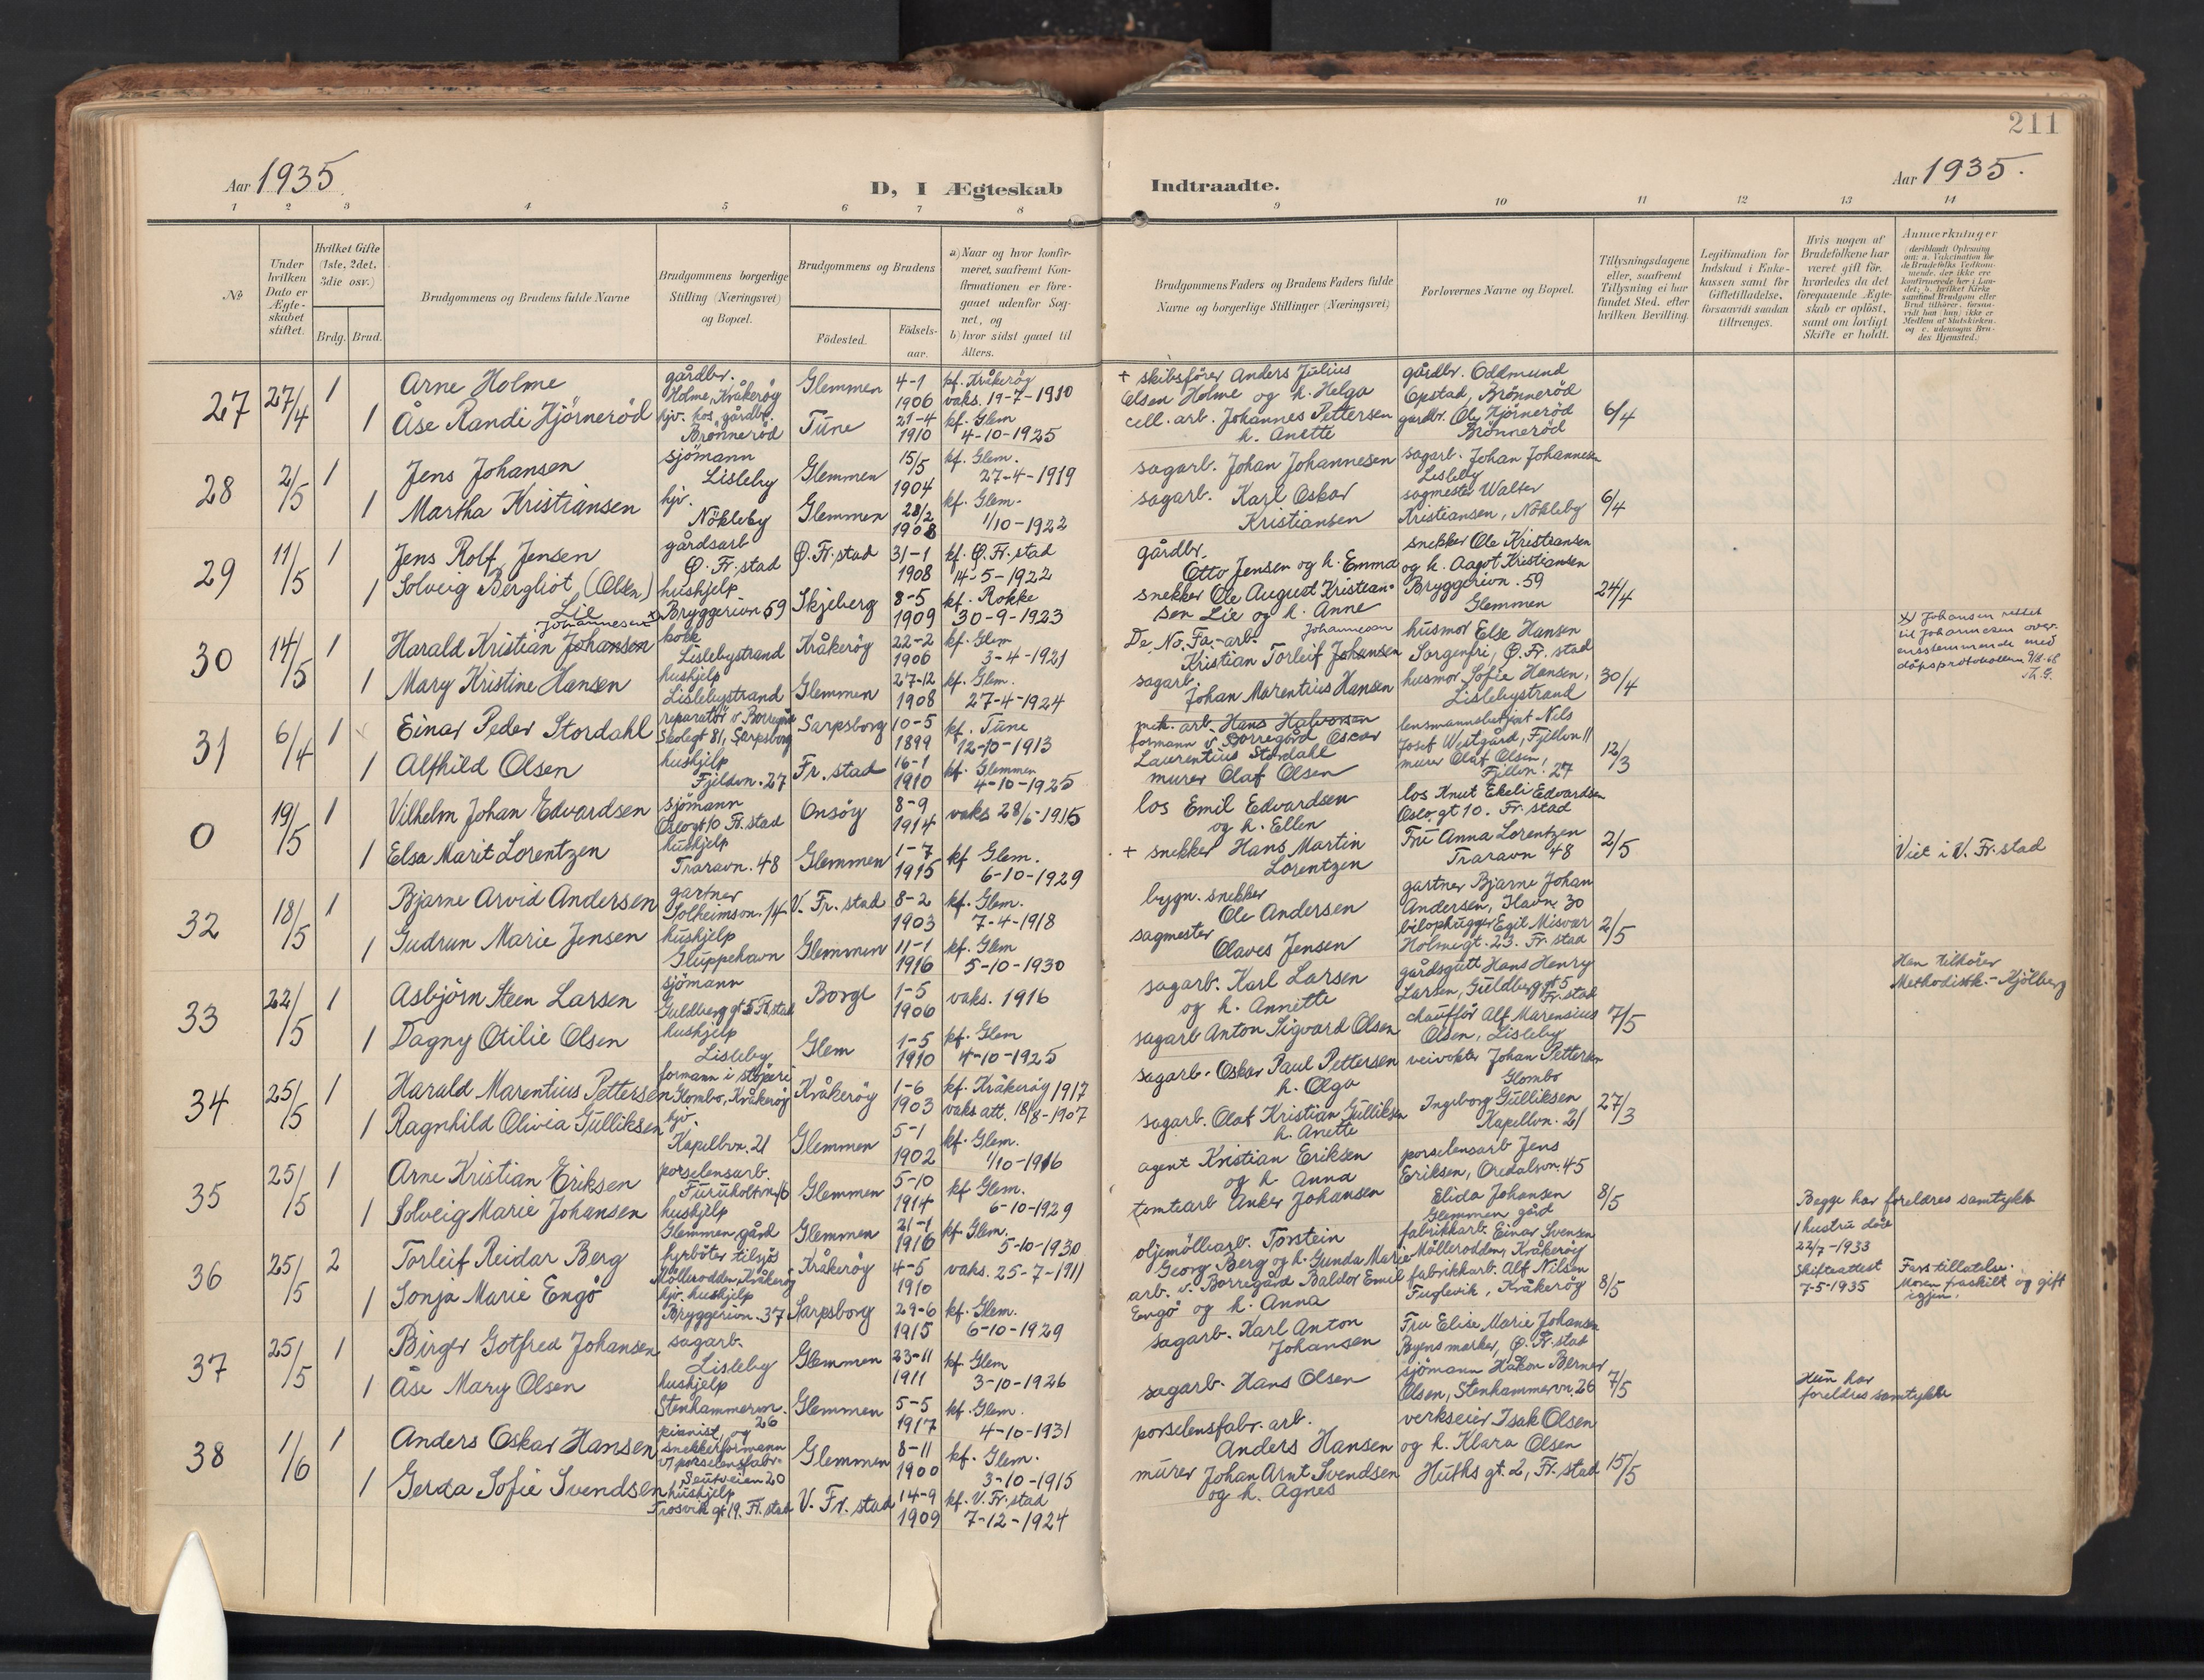 211
Aar 1935
D, I Ægteskab Indtraadte.
Aar 1935.
1 2 3 4 5 6 7 8 9 10 11 12 13 14
№
Under hvilken Dato er Ægteskabet stiftet.
Hvilket Gifte (1ste, 2det, 3die osv.)
Brdg. Brud.
Brudgommens og Brudens fulde Navne
Brudgommens borgerlige Stilling (Næringsvei) og Bopæl.
Brudgommens og Brudens
Födested.
Födselsaar.
a) Naar og hvor konfirmeret, saafremt Konfirmationen er foregaaet udenfor Sognet, og
b) hvor sidst gaaet til Alters.
Brudgommens Faders og Brudens Faders fulde Navne og borgerlige Stillinger (Næringsvei)
Forlovernes Navne og Bopæl.
Tillysningsdagene eller, saafremt Tillysning ei har fundet Sted, efter hvilken Bevilling.
Legitimation for Indskud i Enkekassen samt for Giftetilladelse, forsaavidt saadan tiltrænges.
Hvis nogen af Brudefolkene har været gift för, hvorledes da det foregaaende Ægteskab er oplöst, samt om lovligt Skifte er holdt.
Anmærkninger
(deriblandt Oplysning om: a. Vakcination for de Brudefolks Vedkommende, der ikke ere konfirmerede her i Landet; b. hvilket Kirkesamfund Brudgom eller Brud tilhører, forsaavidt han (hun) ikke er Medlem af Statskirken, og c. udensogns Brudes Hjemsted.)
27
27/4
1
Arne Holme
gårdbr.
Holme, Kråkeröy
Glemmen
4-1
1906
kf. Kråkeröy
vaks. 19-7-1910
+ skibsförer Anders Julius
Olsen Holme og h. Helga
gårdbr. Oddmund
Opstad, Brönneröd
1
Åse Randi Hjörneröd
hjv. hos gårdbr.
Brönneröd
Tune
21-4
1910
kf. Glem
4-10-1925
cell. arb. Johannes Pettersen
h. Anette
gårdbr. Ole Hjörneröd
Brönneröd
6/4
28
2/5
1
Jens Johansen
sjömann
Lisleby
Glemmen
15/5
1904
kf. Glem.
27-4-1919
sagarb. Johan Johannesen
sagarb. Johan Johannesen
Lisleby
1
Martha Kristiansen
hjv.
Nökleby
Glemmen
28/2
1908
kf. Glem.
1/10-1922
sagarb. Karl Oskar
Kristiansen
sagmester Walter
Kristiansen, Nökleby
6/4
29
11/5
1
Jens Rolf Jensen
gårdsarb
Ö. Fr.stad
Ö. Fr.stad
31-1
1908
kf. Ö. Fr.stad
14-5-1922
gårdbr.
Otto Jensen og h. Emma
snekker Ole Kristiansen
og h. Aagot Kristiansen
1
Solveig Bergliot (Olsen)
Lie
hushjelp
Bryggerivn 59
Skjeberg
8-5
1909
kf. Rokke
30-9-1923
snekker Ole August Kristiansen
Lie og h. Anne
Bryggerivn. 59
Glemmen
24/4
30
14/5
1
Johannesen x
Harald Kristian Johansen
kokk
Lislebystrand
Kråkeröy
22-2
1906
kf. Glem
3-4-1921
De No. Fa.-arb. Johannesen
Kristian Torleif Johansen
husmor Else Hansen
Sorgenfri, Ö. Fr. stad
x) Johansen rettet
til Johannesen over-
ensstemmende med
dåpsprotokollen 9/8-68
Th. G.
1
Mary Kristine Hansen
hushjelp
Lislebystrand
Glemmen
27-12
1908
kf. Glem.
27-4-1924
sagarb.
Johan Marentius Hansen
husmor Sofie Hansen,
Lislebystrand
30/4
31
6/4
1
Einar Peder Stordahl
reparatör v. Borregård
Skolegt 81, Sarpsborg
Sarpsborg
10-5
1899
kf. Tune
12-10-1913
mek. arb. Hans Halvorsen
formann v. Borregård Oscar
Laurentius Stordahl
lensmannsbetjent Nils
Josef Westgård, Fjellvn 11
1
Alfhild Olsen
hushjelp
Fjeldvn. 27
Fr. stad
16-1
1910
kf. Glemmen
4-10-1925
murer Olaf Olsen
murer Olaf Olsen,
Fjellvn. 27
12/3
0
19/5
1
Vilhelm Johan Edvardsen
sjömann
Oslogt 10 Fr. stad
Onsöy
8-9
1914
vaks 28/6-1915
los Emil Edvardsen
og h. Ellen
los Knut Ekeli Edvardsen
Oslo gt 10. Fr. stad
1
Elsa Marit Lorentzen
hushjelp
Traravn. 48
Glemmen
1-7
1915
kf Glem.
6-10-1929
+ snekker Hans Martin
Lorentzen
Fru Anna Lorentzen
Traravn 48
2/5
Viet i V. Fr. stad
32
18/5
1
Bjarne Arvid Andersen
gartner
Solheimsvn. 14
V. Fr. stad
8-2
1903
kf. Glem.
7-4-1918
bygn. snekker
Ole Andersen
gartner Bjarne Johan
Andersen, Havn. 30
1
Gudrun Marie Jensen
hushjelp
Gluppehavn
Glemmen
11-1
1916
kf. Glem
5-10-1930
sagmester
Olaves Jensen
bilophugger Egil Misvær
Holmegt. 23. Fr. stad
2/5
33
22/5
1
Asbjörn Steen Larsen
sjömann
Guldberg gt 5 Fr. stad
Borge
1-5
1906
vaks. 1916
sagarb. Karl Larsen
og h. Annette
gårdsgutt Hans Henry
Larsen, Guldberg gt 5
Fr. stad
Han tilhörer
Methodistk. - Kjölberg
1
Dagny Otilie Olsen
hushjelp
Lisleby
Glem
1-5
1910
kf. Glem
4-10-1925
sagarb Anton Sigvard Olsen
chaufför Alf Marensius
Olsen, Lisleby
7/5
34
25/5
1
Harald Marentius Pettersen
formann i stöperi
Glombo, Kråkeröy
Kråkeröy
1-6
1903
kf. Kråkeröy 1917
vaks att. 18/8-1907
sagarb. Oskar Paul Pettersen
h. Olga
veivokter Johan Pettersen
Glombo
1
Ragnhild Olivia Gulliksen
hjv.
Kapellvn. 21
Glemmen
5-1
1902
kf. Glem.
1/10-1916
sagarb. Olaf Kristian Gulliksen
h. Anette
Ingeborg Gulliksen
Kapellvn. 21
27/3
35
25/5
1
Arne Kristian Eriksen
porselensarb.
Furuholtvn 16
Glemmen
5-10
1914
kf Glem.
6-10-1929
agent Kristian Eriksen
og h Anna
porselensarb Jens
Eriksen, Oredalsvn. 45
1
Solveig Marie Johansen
hushjelp
Glemmen gård
Glemmen
21-1
1916
kf Glem.
5-10-1930
tomtearb Anker Johansen
Elida Johansen
Glemmen gård
8/5
Begge har foreldres samtykke
36
25/5
2
Torleif Reidar Berg
fyrböter tilsjös
Mölleroddens, Kråkeröy
Kråkeröy
4-5
1910
vaks. 25-7-1911
oljemöllearb. Torstein
Georg Berg og h. Gunda Marie
fabrikkarb. Einar Svensen
Mölleroddens, Kråkeröy
1 hustru död
22/7-1933
Skifteattest
7-5-1935
1
Sonja Marie Engö
hjv. hushjelp
Bryggerivn. 37
Sarpsborg
29-6
1915
kf. Glem.
6-10-1929
arb. v. Borregård Baldor Emil
Engö og h. Anna
fabrikkarb. Alf Nilsen
Fuglevik, Kråkeröy
8/5
Fars tillatelse.
Moren fraskilt og gift
igjen.
37
25/5
1
Birger Gotfred Johansen
sagarb.
Lisleby
Glemmen
23-11
1911
kf. Glem
3-10-1926
sagarb. Karl Anton
Johansen
Fru Elise Marie Johansen
Byens marker, Ö. Fr. stad
1
Åse Mary Olsen
hushjelp
Stenhammervn.
26
Glemmen
5-5
1917
kf. Glem.
4-10-1931
sagarb. Hans Olsen
sjömann Håkon Berner
Olsen, Stenhammervn. 26
7/5
Hun har
foreldres samtykke
38
1/6
1
Anders Oskar Hansen
pianist, og
snekkerformann
v/ porselensfabr.
Seutveien 20
Glemmen
8-11
1900
kf. Glem.
3-10-1915
porselensfabr. arb.
Anders Hansen
verkseier Isak Olsen
og h. Klara Olsen
1
Gerda Sofie Svendsen
hushjelp
Trosvik gt 19. Fr. stad
V. Fr. stad
14-9
1909
kf. V. Fr. stad
7-12-1924
murer Johan Arnt Svendsen
og h. Agnes
Huths gt. 2, Fr. stad
15/5